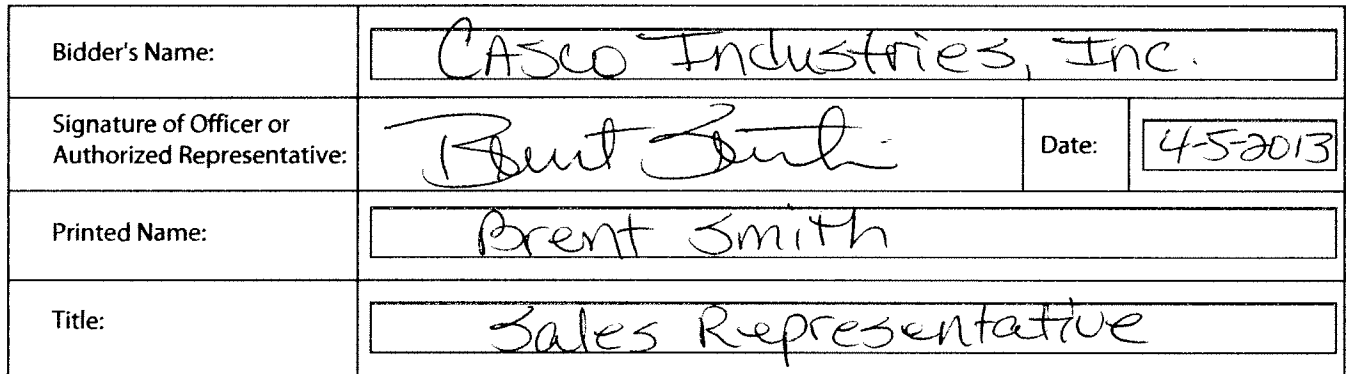 Bidder's Name: CASCO Industries, Inc.
Signature of Officer or
Authorized Representative: Brent Smith Date: 4-5-2013
Printed Name: Brent Smith
Title: Sales Representative